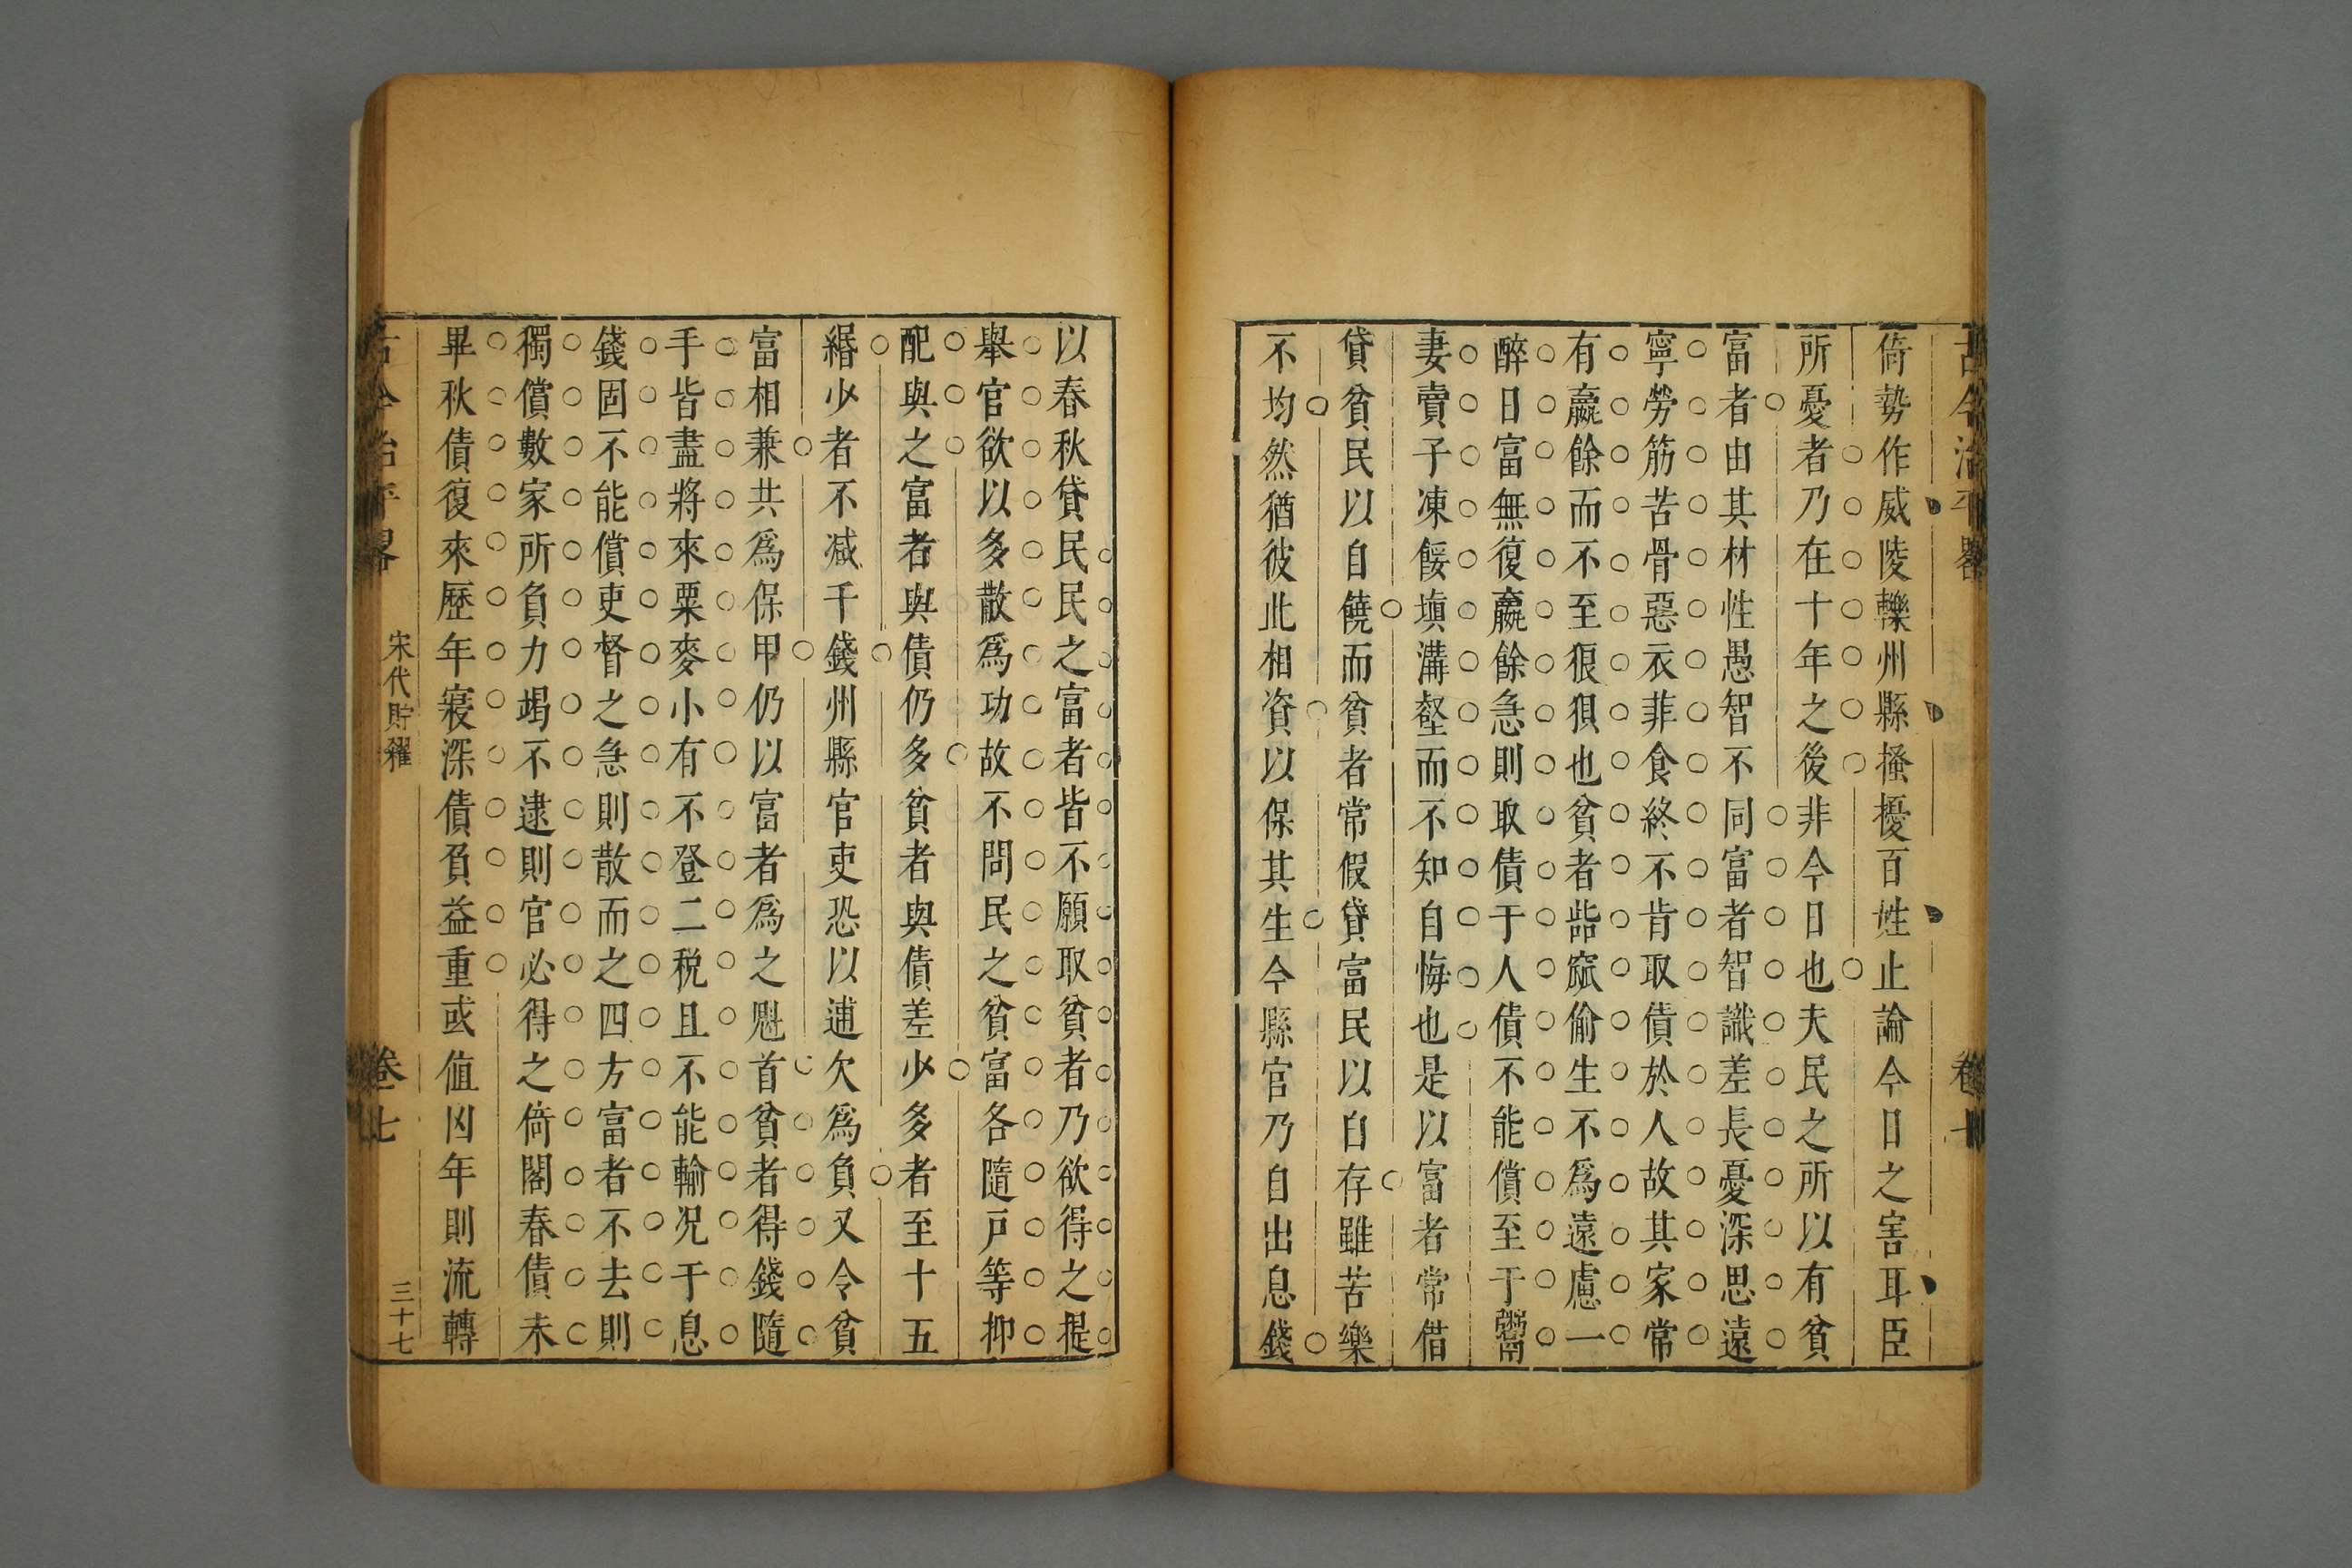 古今治平畧
卷七
倚勢作威陵轢州縣搔擾百姓止論今日之害耳臣
所憂者乃在十年之後非今日也夫民之所以有貧
富者由其材性愚智不同富者智識差長憂深思遠
寧勞筋苦骨惡衣菲食終不肯取債於人故其家常
有贏餘而不至狼狽也貧者啙窳偷生不爲遠慮一
醉日富無復贏餘急則取債于人債不能償至于鬻
妻賣子凍餒塡溝壑而不知自悔也是以富者常借
貸貧民以自饒而貧者常假貸富民以自存雖苦樂
不均然猶彼此相資以保其生今縣官乃自出息錢
以春秋貸民民之富者皆不願取貧者乃欲得之提
舉官欲以多散爲功故不問民之貧富各隨戶等抑
配與之富者與債仍多貧者與債差少多者至十五
緡少者不减千錢州縣官吏恐以逋欠爲負又令貧
富相兼共爲保甲仍以富者爲之魁首貧者得錢隨
手皆盡將來粟麥小有不登二税且不能輸况于息
錢固不能償吏督之急則散而之四方富者不去則
獨償數家所負力竭不逮則官必得之倚閣春債未
畢秋債復來歷年寖深債負益重或值凶年則流轉
古今治平畧
宋代貯糴
卷七
三十七